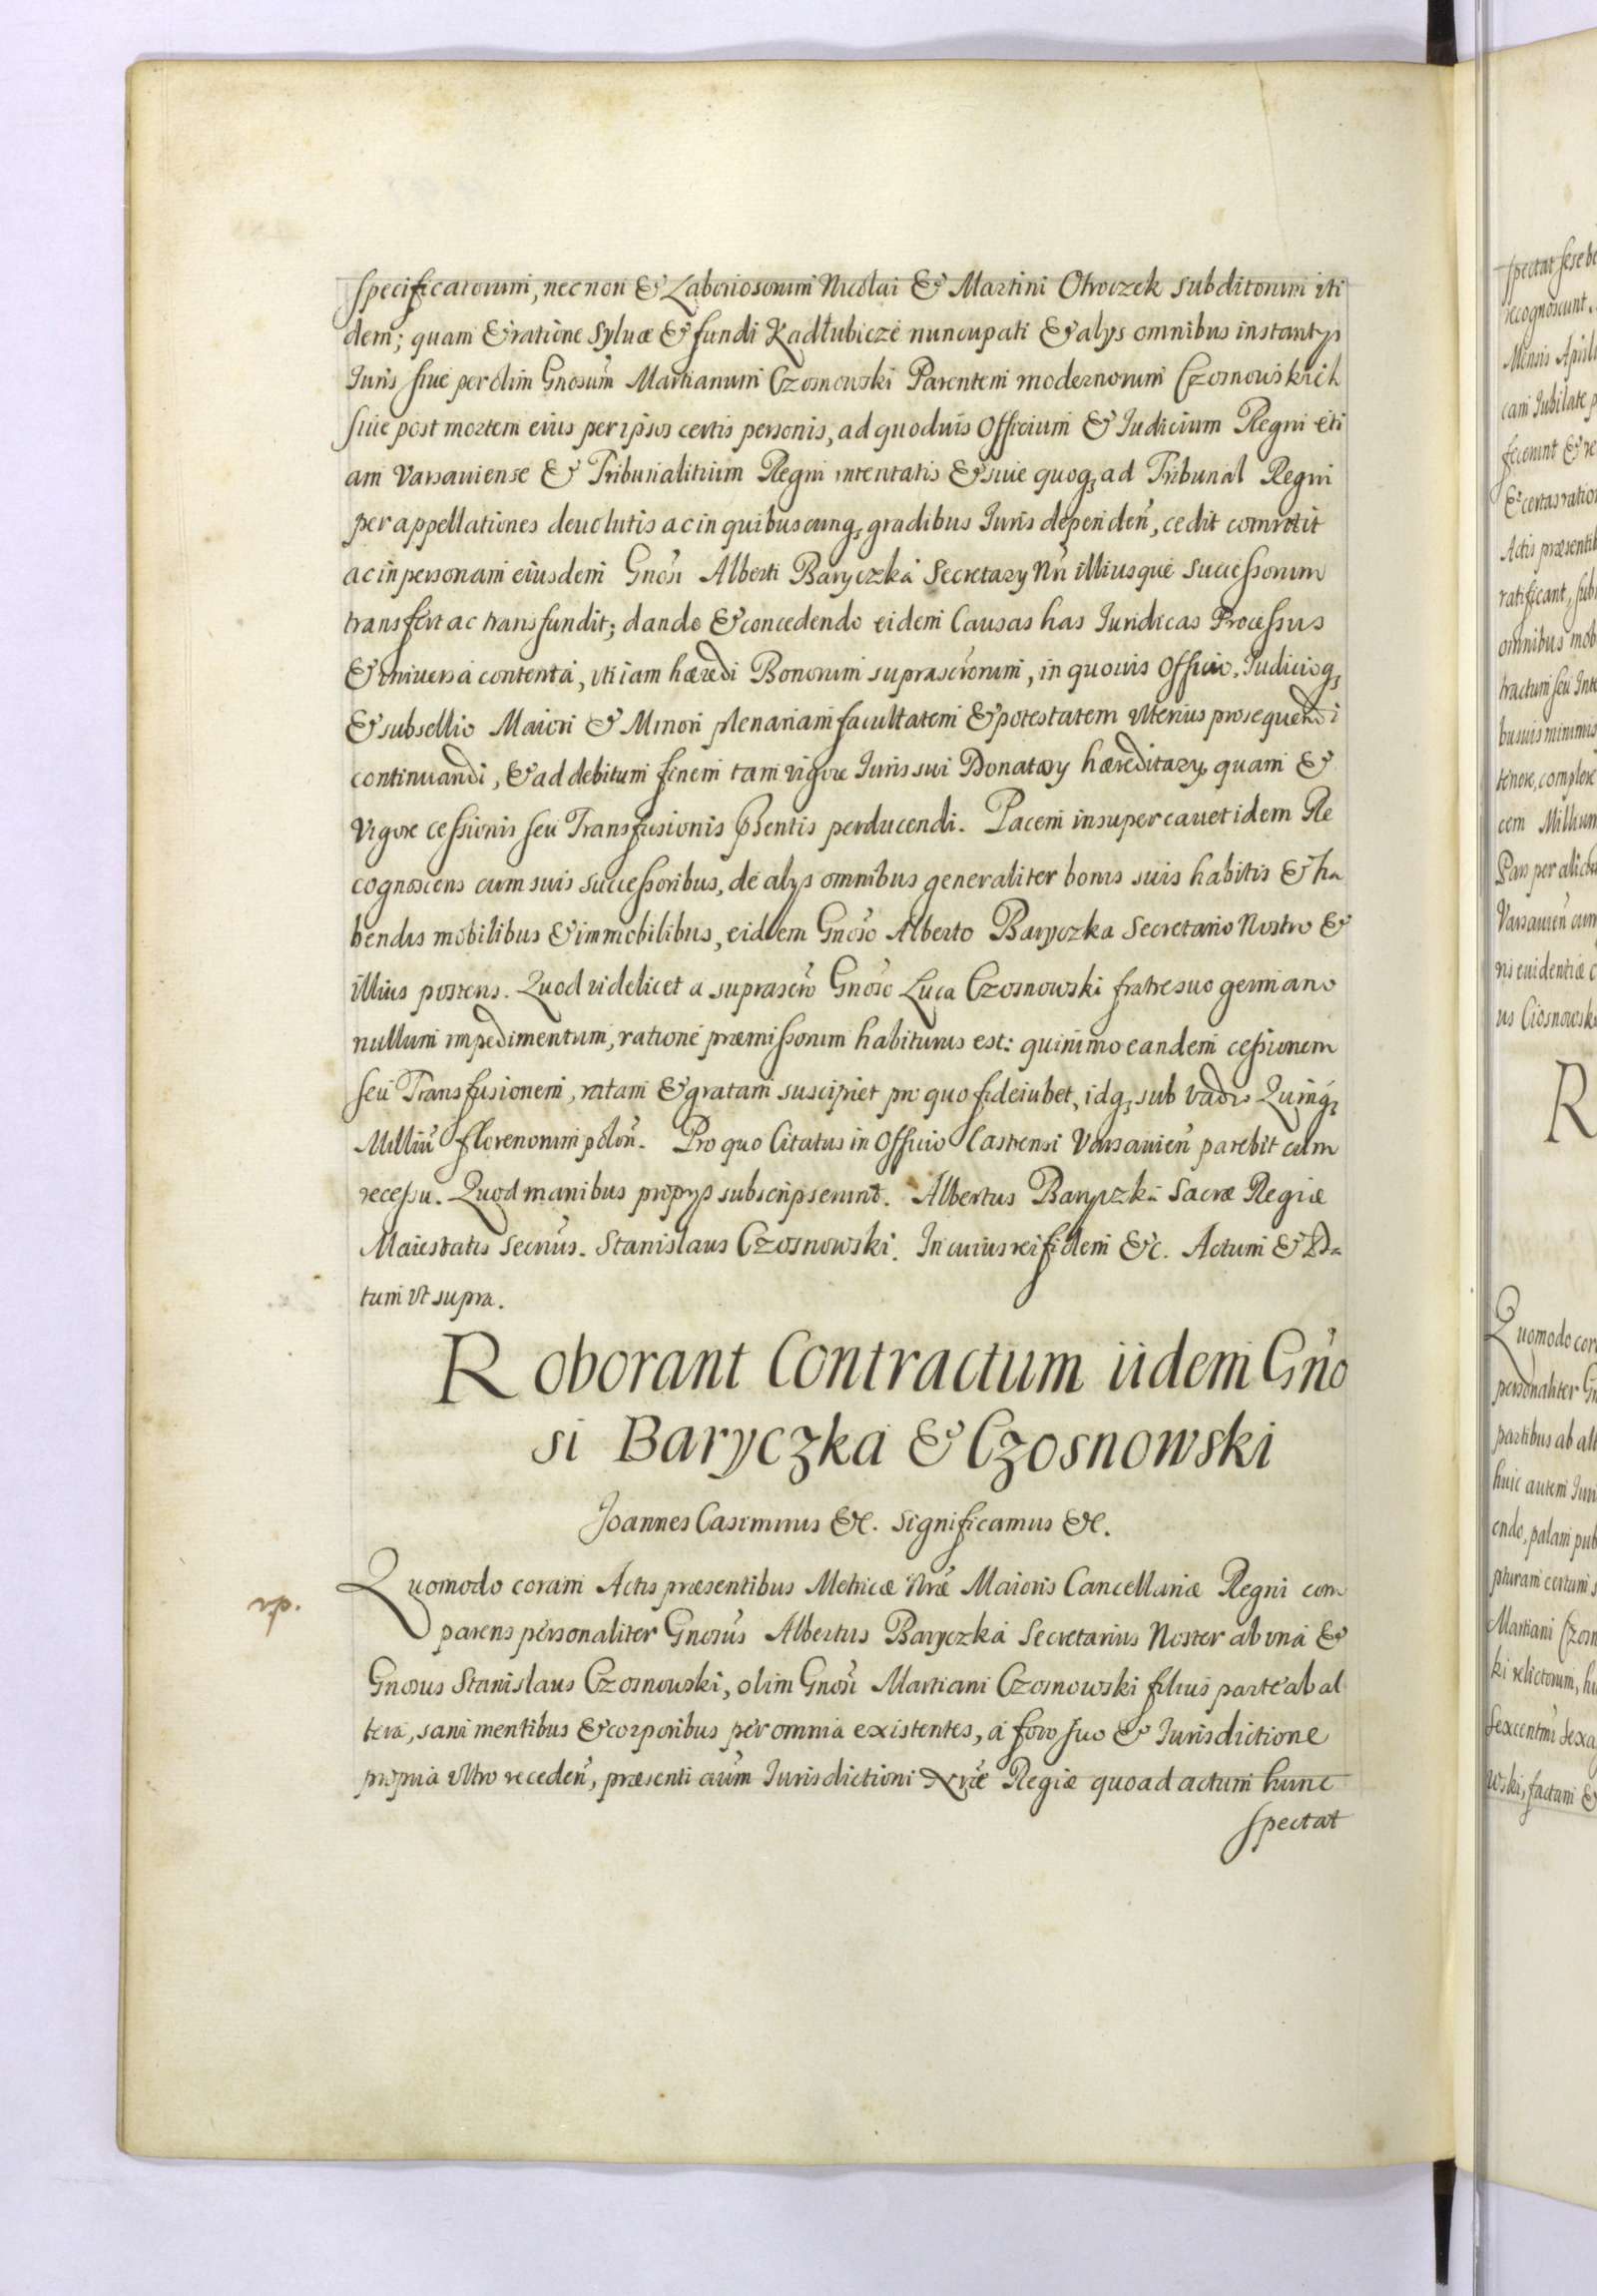 specificatorum, nec non & Laboriosorum Nicolai & Martini Otroczek subditorum iti
dem; quam & ratione Syluæ & fundi Kadłubicze nuncupati & alys omnibus instantys
Iuris siue per olim Gnosum Martianum Czosnowski Parentem modernorum Czosnowskich
siue post mortem eius per ipsos certis personis, ad quoduis Officium & Iudicium Regni eti
am Varsauiense & Tribunalitium Regni intentatis & siue quoq, ad Tribunal Regni
per appellationes deuolutis ac in quibuscunq, gradibus Iuris dependeñ, cedit
ac in personam eiusdem Gnosi Alberti Baryczka Secretary Nri illiusque Successorum
transfert ac transfundit; dando & concedendo eidem Causas has Iuridicas Processus
& vniuersa contenta, vti iam hæredi Bonorum suprascrorum, in quouis Officio, Iudicioq,
& subsellio Maiori & Minori plenariam facultatem & potestatem vlterius prosequendi
continuandi, & ad debitum finem tam vigore Iuris sui Donatary hæreditary, quam &
vigore cessionis seu Transfusionis pñtis perducendi. Pacem insuper cauet idem Re
cognoscens cum suis successoribus, de alys omnibus generaliter bonis suis habitis & ha
bendis mobilibus & immobilibus, eidem Gnoso Alberto Baryczka Secretario Nostro &
illius posteris. Quod videlicet a suprascro Gnoso Luca Czosnowski fratre suo germano
nullum impedimentum, ratione præmissorum habiturus est: quinimo eandem cessionem
seu Transfusionem, ratam & gratam suscipiet pro quo fideiubet, idq, sub vadio Quinq,
Milliũ florenorum polon̄. Pro quo Citatus in Officio Castrensi Varsauien̄ parebit cum
recessu. Quod manibus propys subscripserunt. Albertus Baryczka Sacræ Regiæ
Maiestatis Secrius. Stanislaus Czosnowski. In cuius rei fidem &c. Actum & Da
tum vt supra.
Roborant Contractum iidem Gño
si Baryczka & Czosnowski
Joannes Casimirus &c. Significamus &c.
Quomodo coram Actis præsentibus Metricæ Nræ Maioris Cancellariæ Regni com
parens personaliter Gnosus Albertus Baryczka Secretarius Noster ab vna &
Gnosus Stanislaus Czosnowski, olim Gnosi Martiani Czosnowski filius parte ab al
tera, sani mentibus & corporibus per omnia existentes, a foro suo & Iurisdictione
propria vltro receden̄, præsenti aum̄ Iurisdictioni Nræ Regiæ quoad actum hunc
spectat